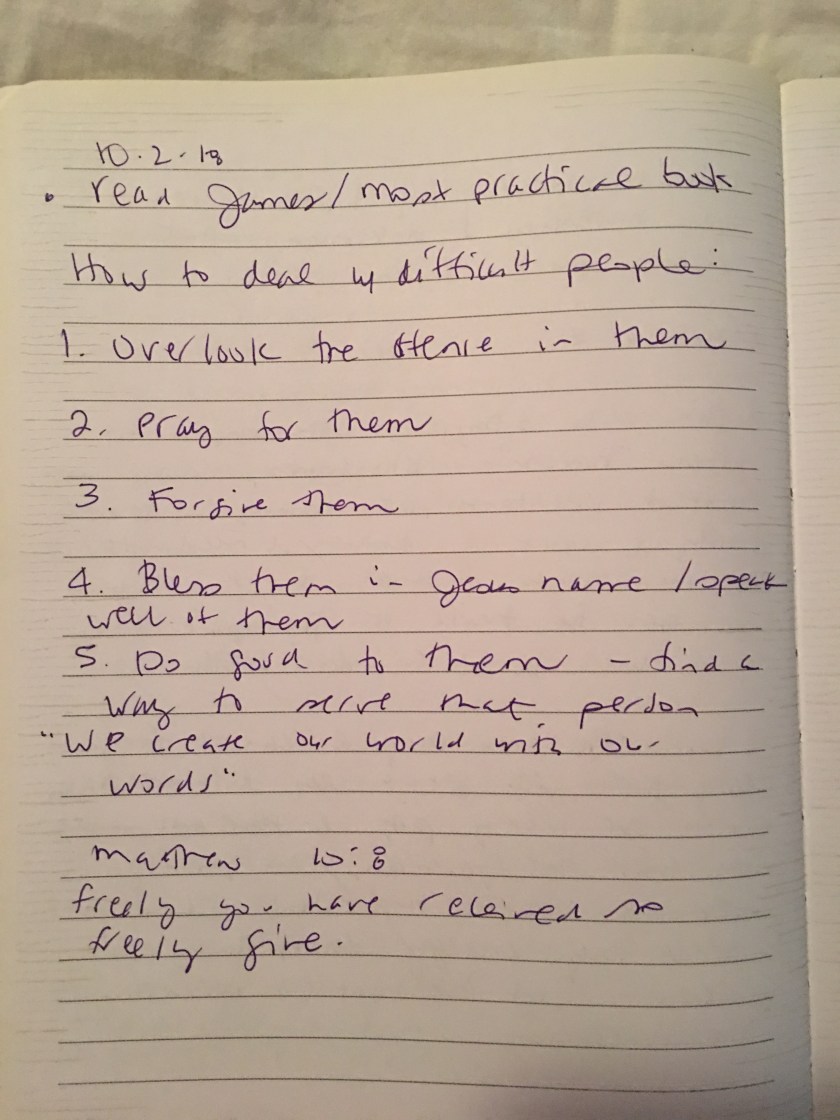 10.2.18
• read James/most practical book
How to deal w difficult people:
1. Overlook the offense in them
2. Pray for them
3. Forgive them
4. Bless them in Jesus name / speak
well of them
5. Do good to them - find a
way to serve that person
"We create our world with our
words"
Matthew 10:8
freely you have received so
freely give.